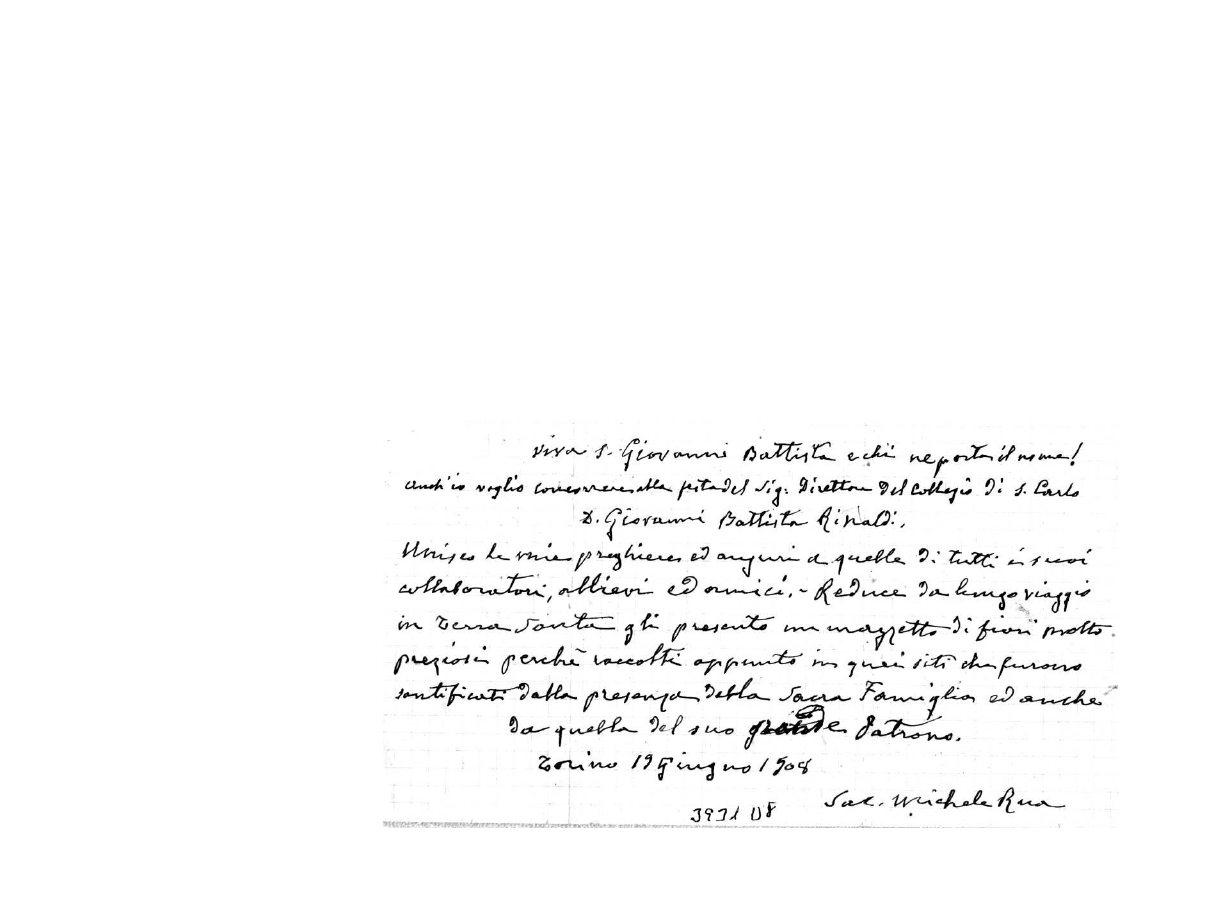 Viva S. Giovanni Battista e chi ne porta il nome!
Anch'io voglio concorrere alla festa del Sig. Direttore del Collegio di S. Carlo
D. Giovanni Battista Rinaldi.
Unisco le mie preghiere ed auguri a quelle di tutti i suoi
collaboratori, allievi ed amici. - Reduce da lungo viaggio
in Terra Santa gli presento un mazzetto di fiori molto
preziosi perchè raccolti appunto in quei siti che furono
santificati dalla presenza della Sacra Famiglia ed anche
da quella del suo grande Patrono.
Torino 19 Giugno 1908
Sac. Michele Rua
3931 D8